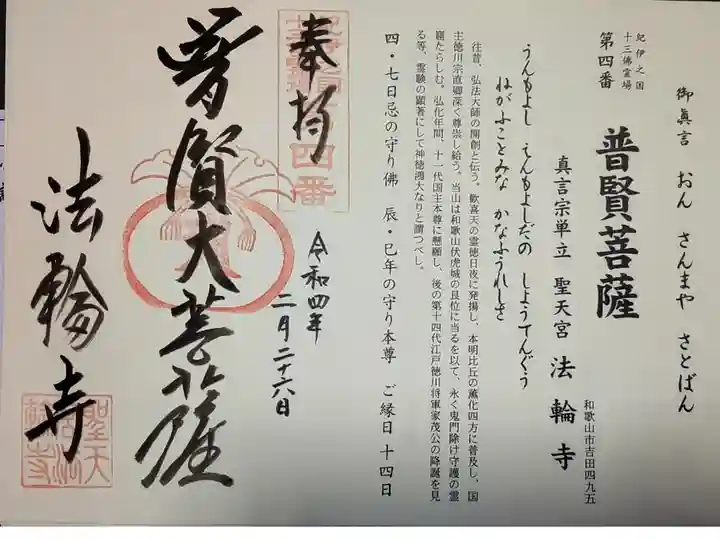 御眞言　おん　さんまや　さとばん
紀伊之国
十三佛霊場
第四番
普賢菩薩
真言宗単立　聖天宮　法輪寺
和歌山市吉田四九五
うんもよし　えんもよしだの　しようてんぐう
ねがふことみな　かなふうれしさ
往昔、弘法大師の開創と伝う。歓喜天の霊徳日夜に発揚し、本明比丘の薫化四方に普及し、国
主徳川宗直卿深く尊崇し給う。当山は和歌山伏虎城の艮位に当るを以て、永く鬼門除け守護の霊
窟たらしむ。弘化年間、十一代国主本尊に懇願し、後の第十四代江戸徳川将軍家茂公の降誕を見
る等、霊験の顕著にして神徳鴻大なりと謂つべし。
四・七日忌の守り佛　辰・巳年の守り本尊　ご縁日　十四日
奉拝
令和四年
二月二十六日
普賢大菩薩
法輪寺
四番
聖天